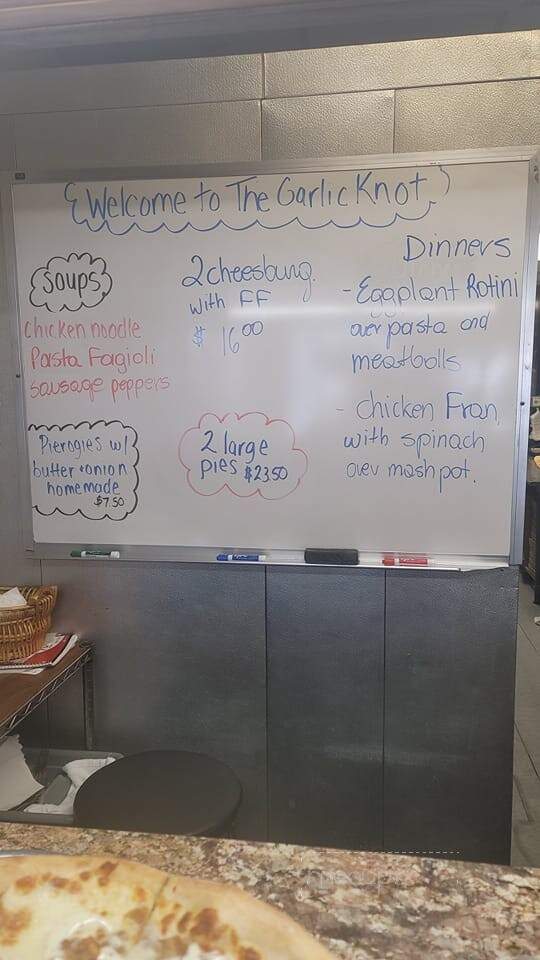 Welcome to The Garlic Knot
Soups
Chicken noodle
Pasta Fagioli
sausage peppers
Pierogies w/
butter + onion
homemade
$7.50
2 cheesburg.
with FF
$ 16.00
2 large
pies $23.50
Dinners
- Eggplant Rotini
over pasta and
meatballs
- Chicken Fran
with spinach
over mash pot.